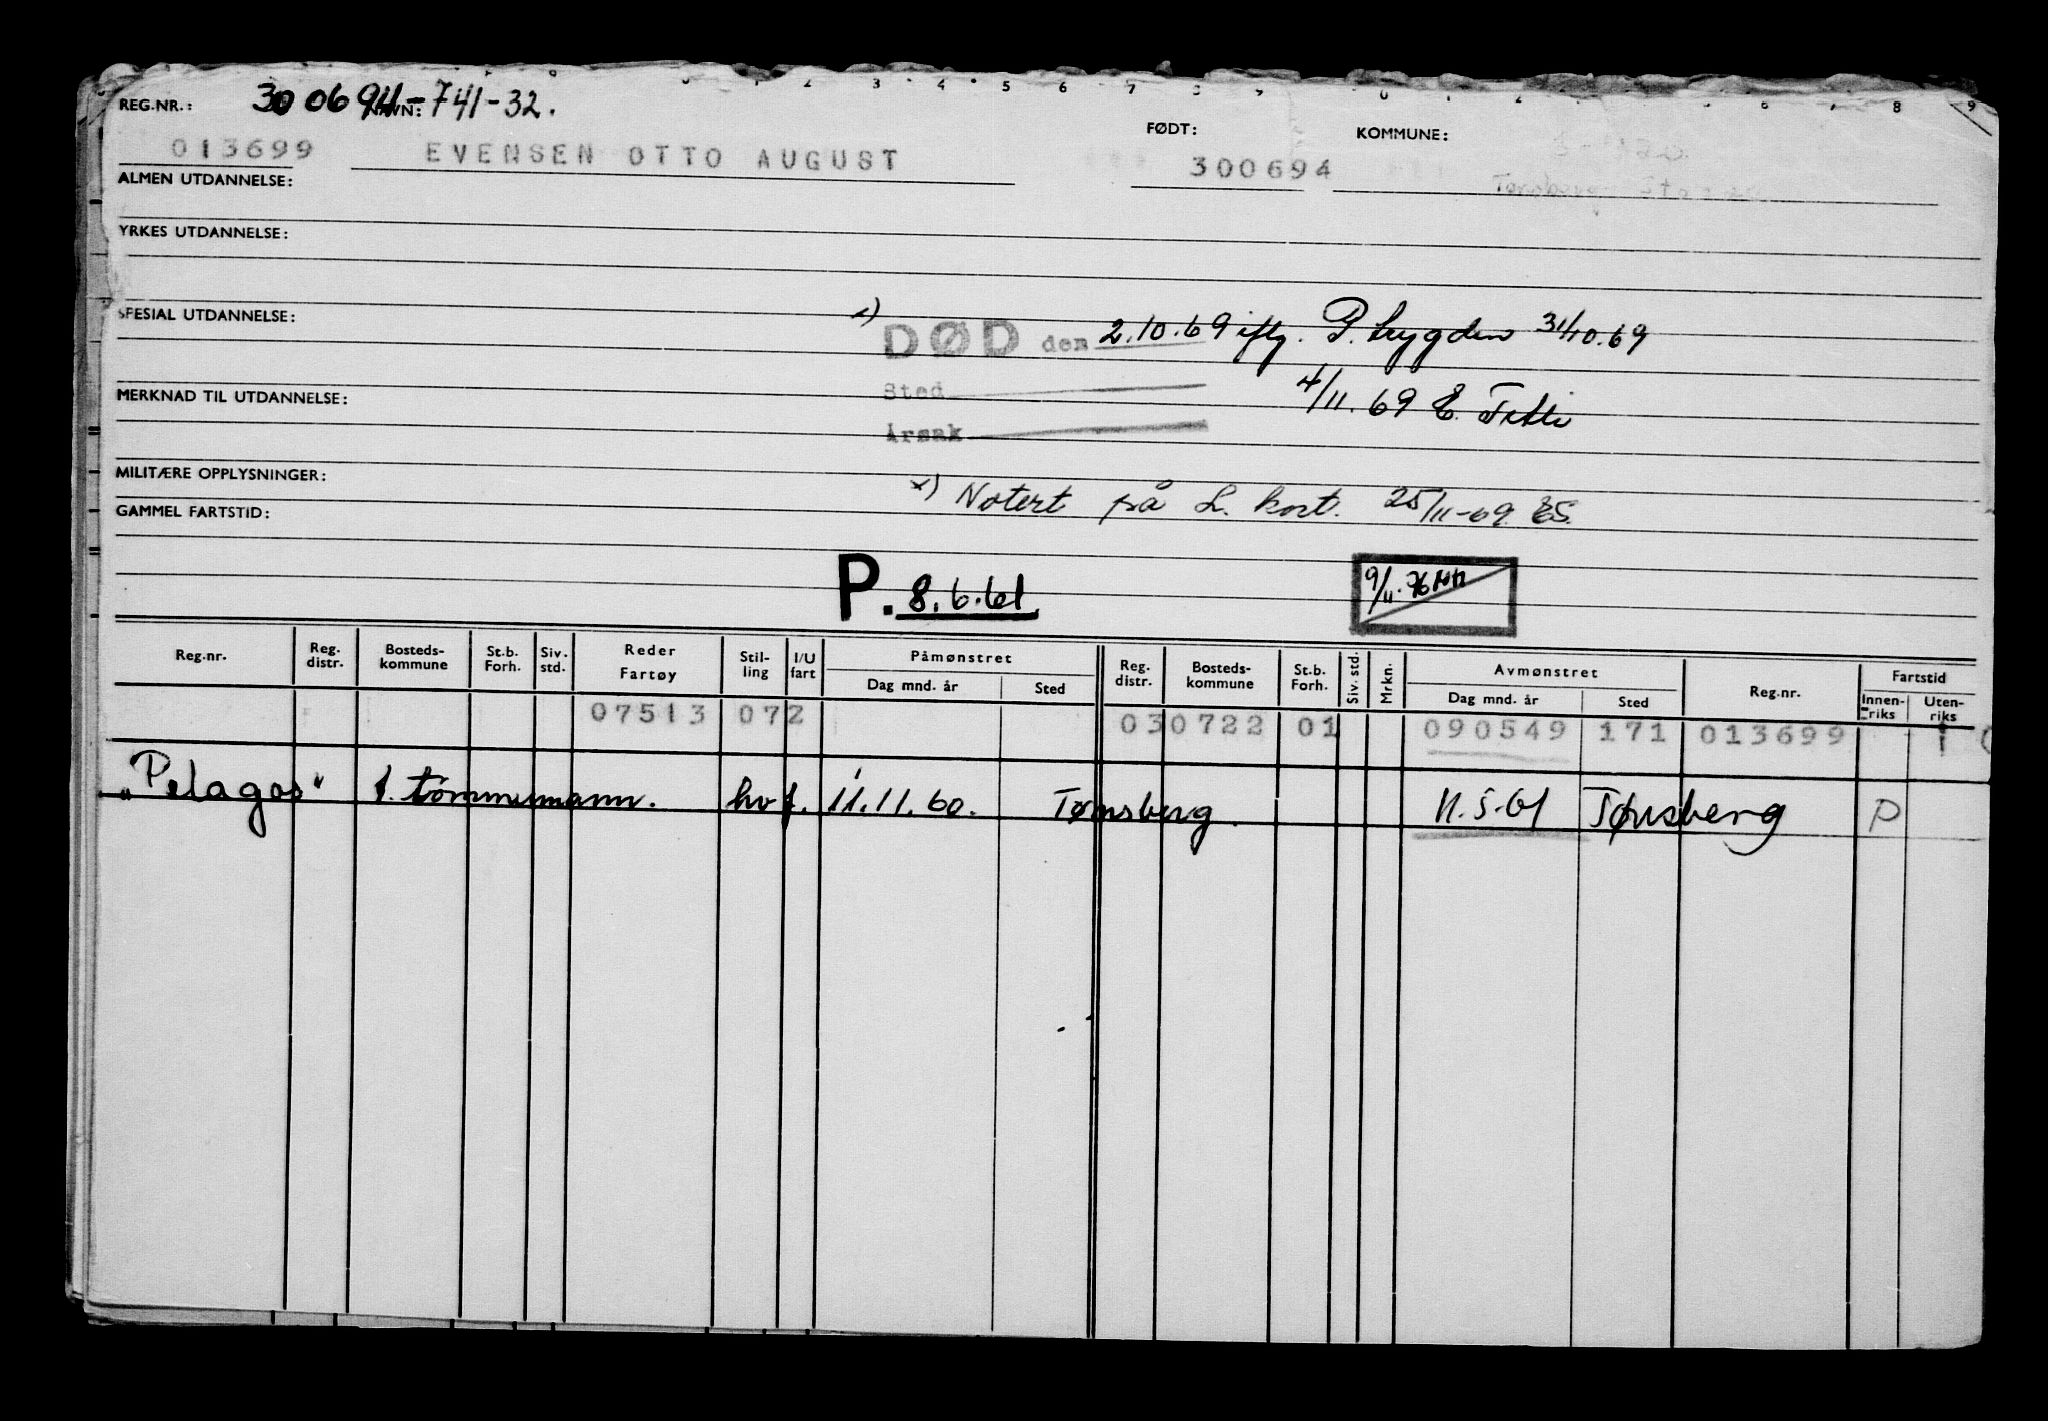 2 3 4 5 6 7 8 9 0 1 2 6 7 8 9
REG.NR.: 300694-741-32. FØDT: KOMMUNE:
013699 EVENSEN OTTO AUGUST 300694
ALMEN UTDANNELSE:
YRKES UTDANNELSE:
SPESIAL UTDANNELSE:
x) DØD den 2.10.69 iflg. P. trygden 31/10.69
Sted
4/11.69 E.
MERKNAD TIL UTDANNELSE:
Årsak
MILITÆRE OPPLYSNINGER:
x) Notert på L. kort. 25/11-69.
GAMMEL FARTSTID:
P. 8.6.61
9/11.76
Reg.nr. Reg. distr. Bosteds-kommune St.b. Forh. Siv. std. Reder Fartøy Stil-ling I/U fart Påmønstret Dag mnd. år Sted Reg. distr. Bosteds-kommune St.b. Forh. Siv. std. Mrkn. Avmønstret Dag mnd. år Sted Reg.nr. Fartstid Innen-riks Uten-riks
07513 072 030722 01 090549 171 013699 1
"Pelagos" 1. tømmermann. hvf. 11.11.60. Tønsberg. 11.5.61 Tønsberg P